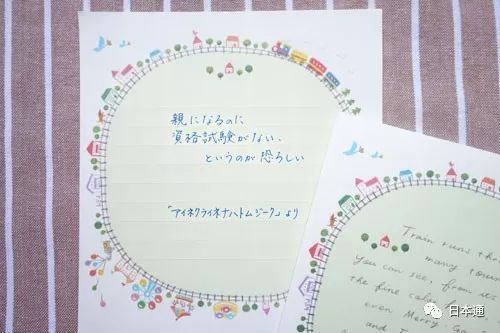 親になるのに
資格試験がない、
というのが恐ろしい
「アイネクライネナハトムジーク」より
Train runs thr
many towns
You can see, from its
the fine cal
even Merry-Go
and
日本通